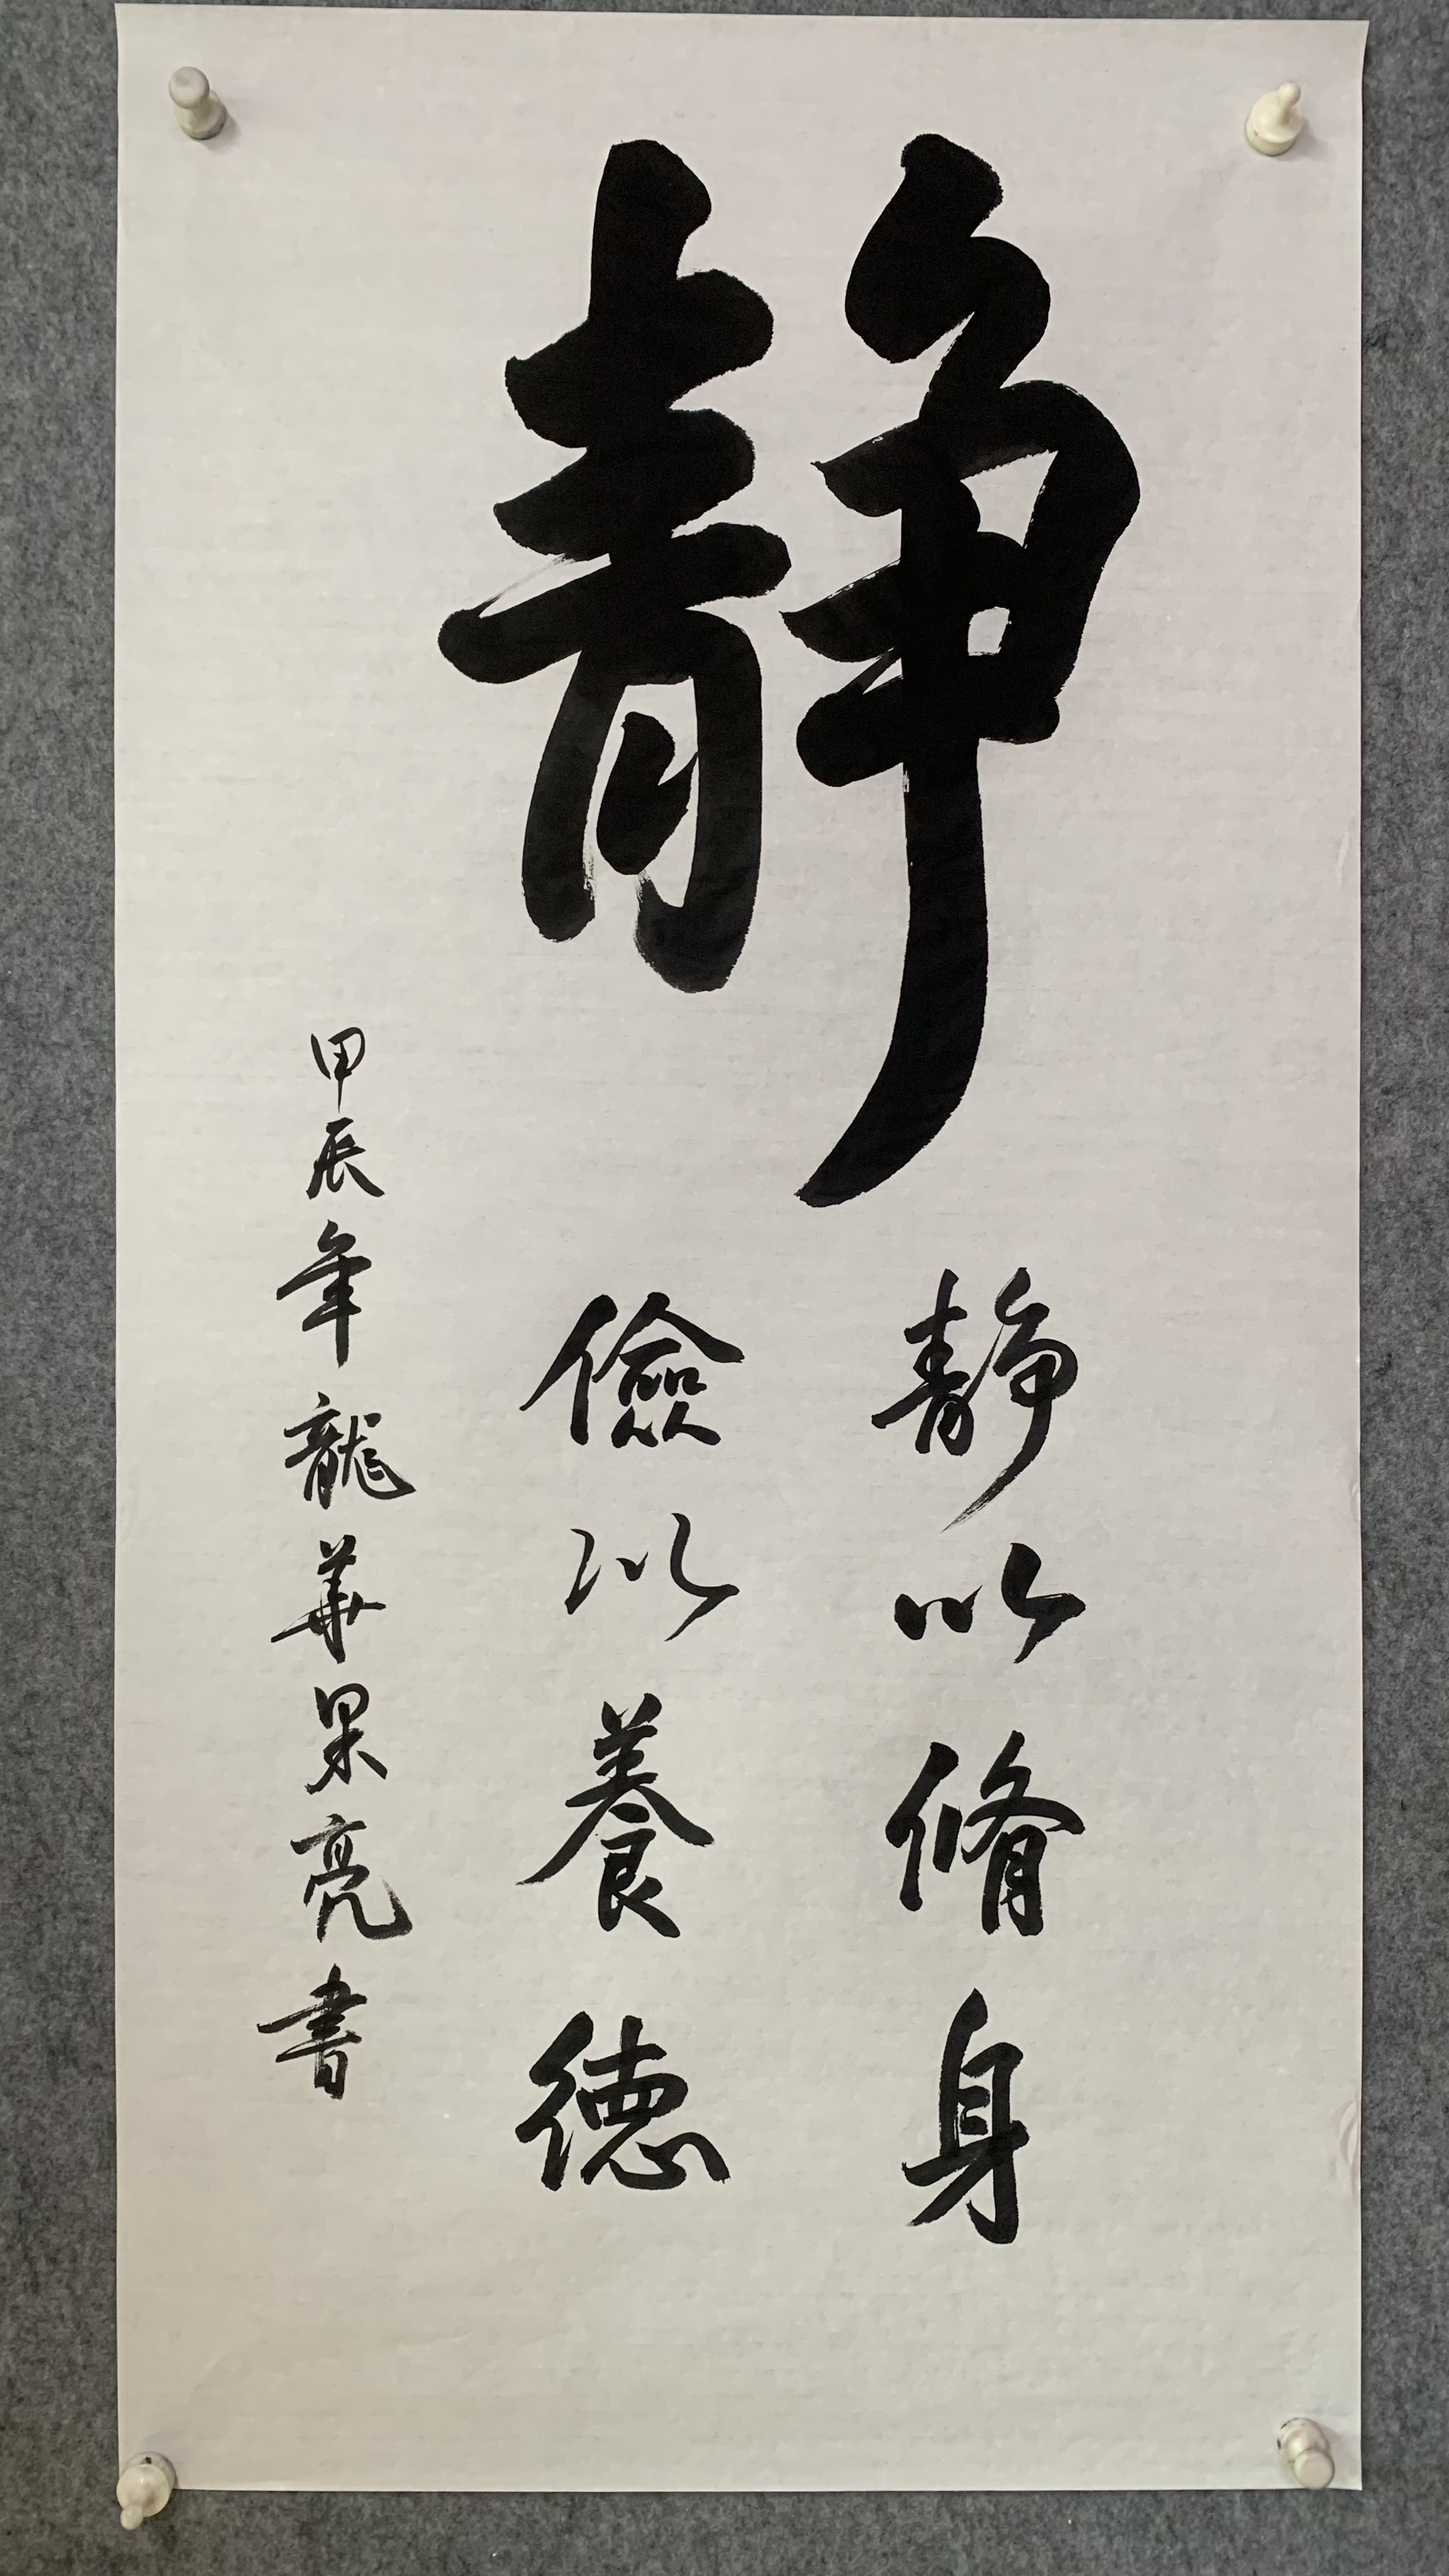 靜
靜以脩身
儉以養德
甲辰年龍華果亮書